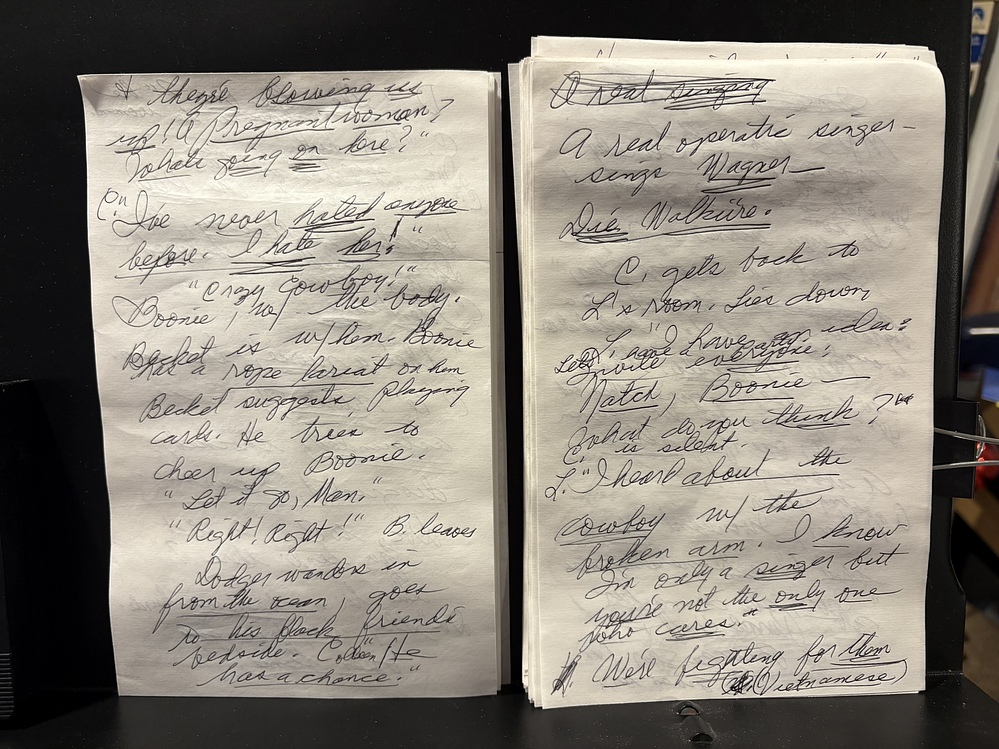 & they're blowing us
up! A Pregnant woman?
What's going on here?"
C. "I've never hated anyone
before. I hate her!"
"Crazy Cowboy!"
Boonie, w/ the body.
Becket is w/ him. Boonie
has a rope lariat on him
Becket suggests playing
cards. He tries to
cheer up Boonie.
"Let it go, Man."
"Right! Right!" B. leaves
Dodger wanders in
from the ocean, goes
to his black friends
bedside. Colleen "He
has a chance."
A real singing
A real operatic singer –
sings Wagner –
Die Walküre.
C. gets back to
L's room. Lies down,
L. "I have an idea:
Let's have a
invite everyone,
Natch, Boonie —
What do you think?"
is silent.
L. "I heard about the
cowboy w/ the
broken arm. I know
I'm only a singer but
you're not the only one
who cares."
We're fighting for them
(Vietnamese)